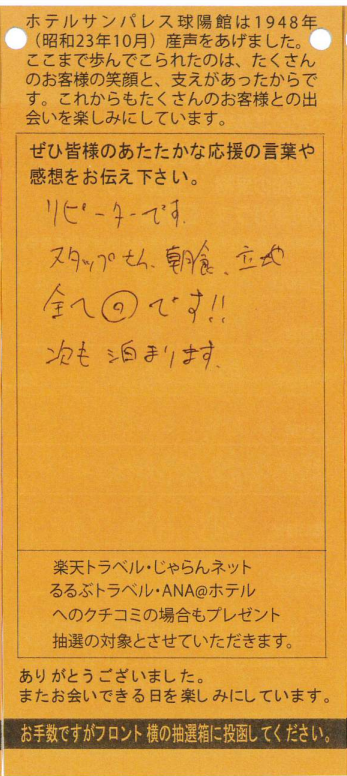 ホテルサンパレス球陽館は1948年
（昭和23年10月）産声をあげました。
ここまで歩んでこられたのは、たくさん
のお客様の笑顔と、支えがあったからで
す。これからもたくさんのお客様との出
会いを楽しみにしています。
ぜひ皆様のあたたかな応援の言葉や
感想をお伝え下さい。
リピーターです。
スタッフさん、朝食、立地
全て◎です!!
次も泊まります。
楽天トラベル・じゃらんネット
るるぶトラベル・ANA@ホテル
へのクチコミの場合もプレゼント
抽選の対象とさせていただきます。
ありがとうございました。
またお会いできる日を楽しみにしています。
お手数ですがフロント横の抽選箱に投函してください。